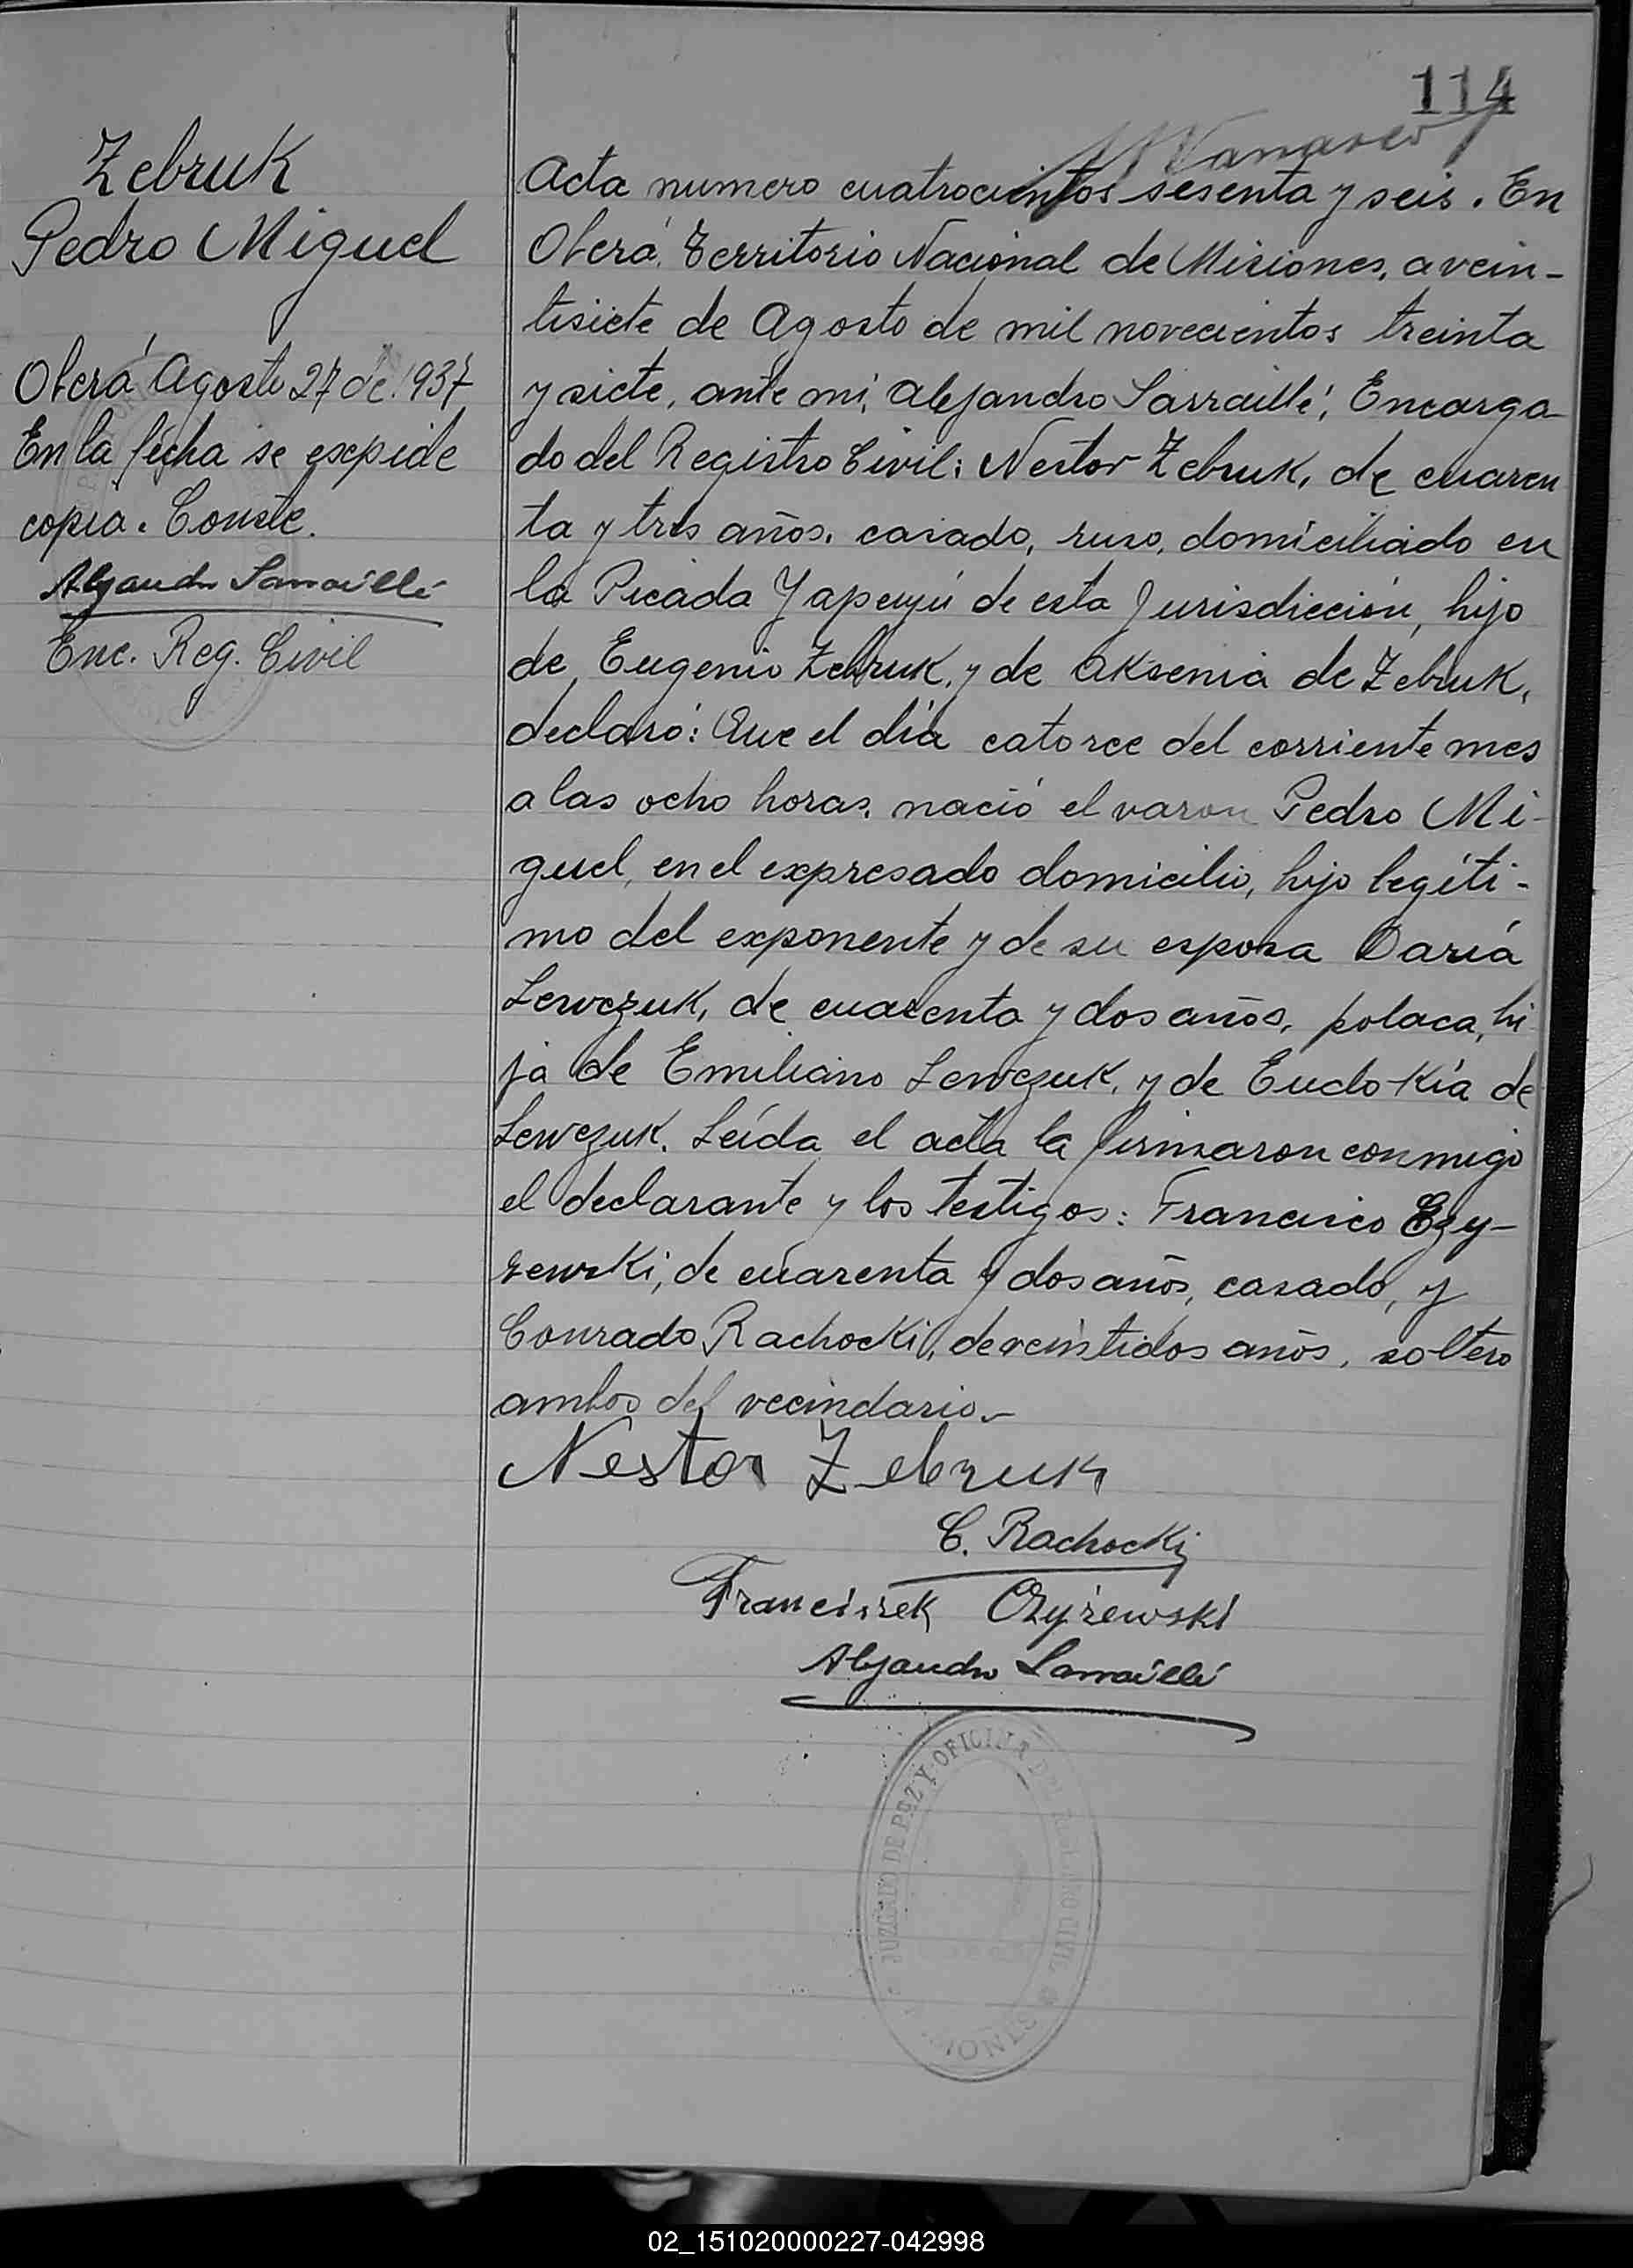 114
Zebruk
Pedro Miguel
Oberá Agosto 27 de 1937
En la fecha se expide
copia. Conste.
Alejandro Sarraillé
Enc. Reg. Civil
Acta numero cuatrocientos sesenta y seis. En
Oberá, Territorio Nacional de Misiones, a vein-
tisiete de Agosto de mil novecientos treinta
y siete, ante mi, Alejandro Sarraillé, Encarga-
do del Registro Civil: Nestor Zebruk, de cuaren
ta y tres años, casado, ruso, domiciliado en
la Picada Yapeyú de esta Jurisdicción, hijo
de Eugenio Zebruk, y de Aksenia de Zebruk,
declaró: Que el día catorce del corriente mes
a las ocho horas, nació el varon Pedro Mi-
guel, en el expresado domicilio, hijo legíti-
mo del exponente y de su esposa Daría
Lewczuk, de cuarenta y dos años, polaca, hi
ja de Emiliano Lewczuk, y de Eudokía de
Lewczuk. Leída el acta la firmaron conmigo
el declarante y los testigos: Francisco Czy-
zewski, de cuarenta y dos años, casado, y
Conrado Rachocki, de veintidos años, soltero
ambos del vecindario.-
Nestor Zebruk
C. Rachocki
Franciszek Czyżewski
Alejandro Sarraillé
JUZGADO DE PAZ Y OFICINA DEL REGISTRO CIVIL
02_151020000227-042998